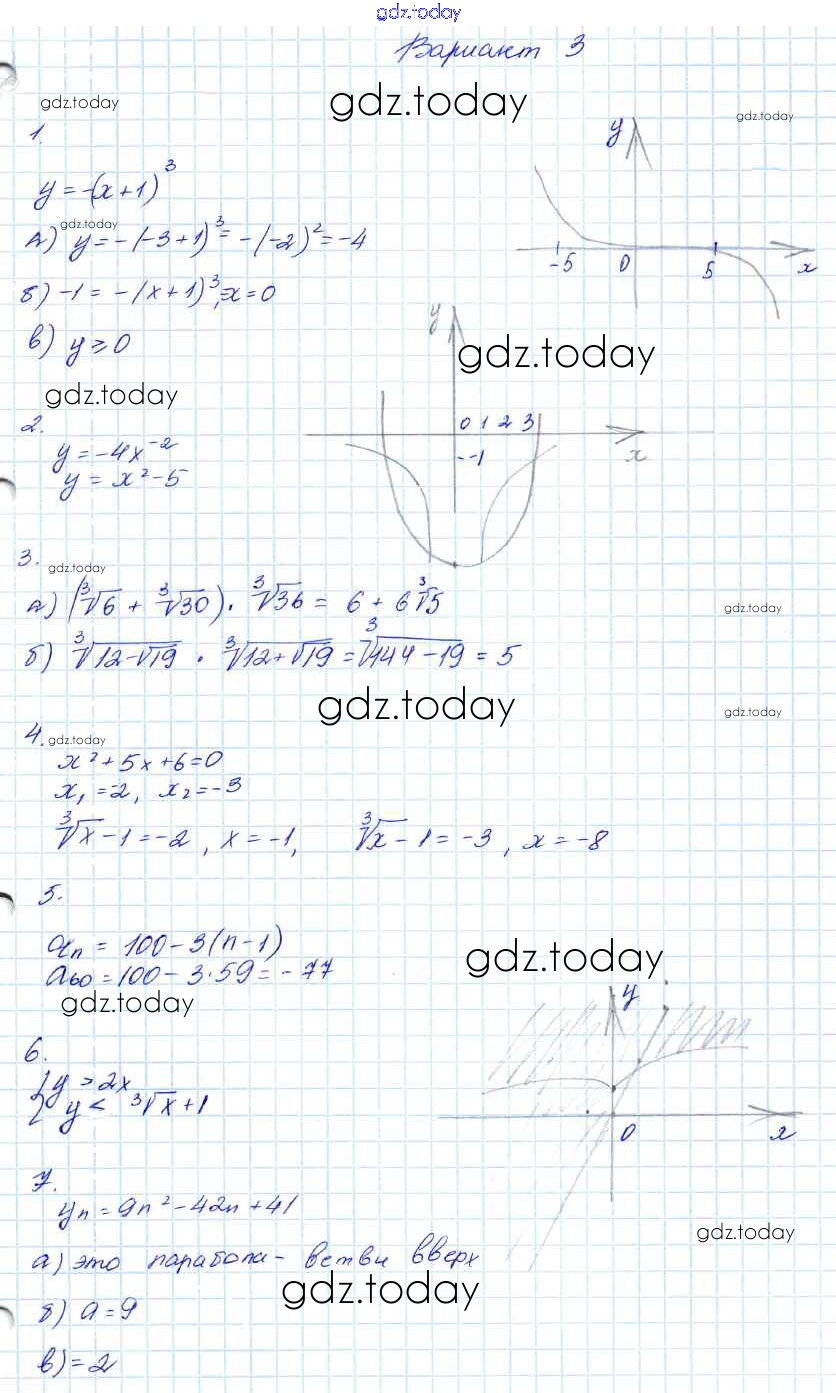 gdz.today
Вариант 3
gdz.today gdz.today gdz.today
1.
y = -(x+1)³
y x -5 0 5
gdz.today
а) y = -(-3+1)³ = -(-2)² = -4
б) -1 = -(x+1)³, x = 0
в) y ≥ 0
gdz.today
gdz.today
2.
y = -4x⁻²
y = x² - 5
y 0 1 2 3 x -1
3.
gdz.today
а) (∛6 + ∛30) · ∛36 = 6 + 6∛5
gdz.today
б) ∛12-√19 · ∛12+√19 = ∛144-19 = 5
gdz.today
gdz.today
4.
gdz.today
x² + 5x + 6 = 0
x₁ = -2, x₂ = -3
∛x - 1 = -2, x = -1, ∛x - 1 = -3, x = -8
5.
aₙ = 100 - 3(n-1)
a₆₀ = 100 - 3·59 = -77
gdz.today
gdz.today
6.
{ y > 2x
y < ∛x + 1
y 0 x
7.
yₙ = 9n² - 42n + 41
gdz.today
а) это парабола - ветви вверх
gdz.today
б) a = 9
в) = 2